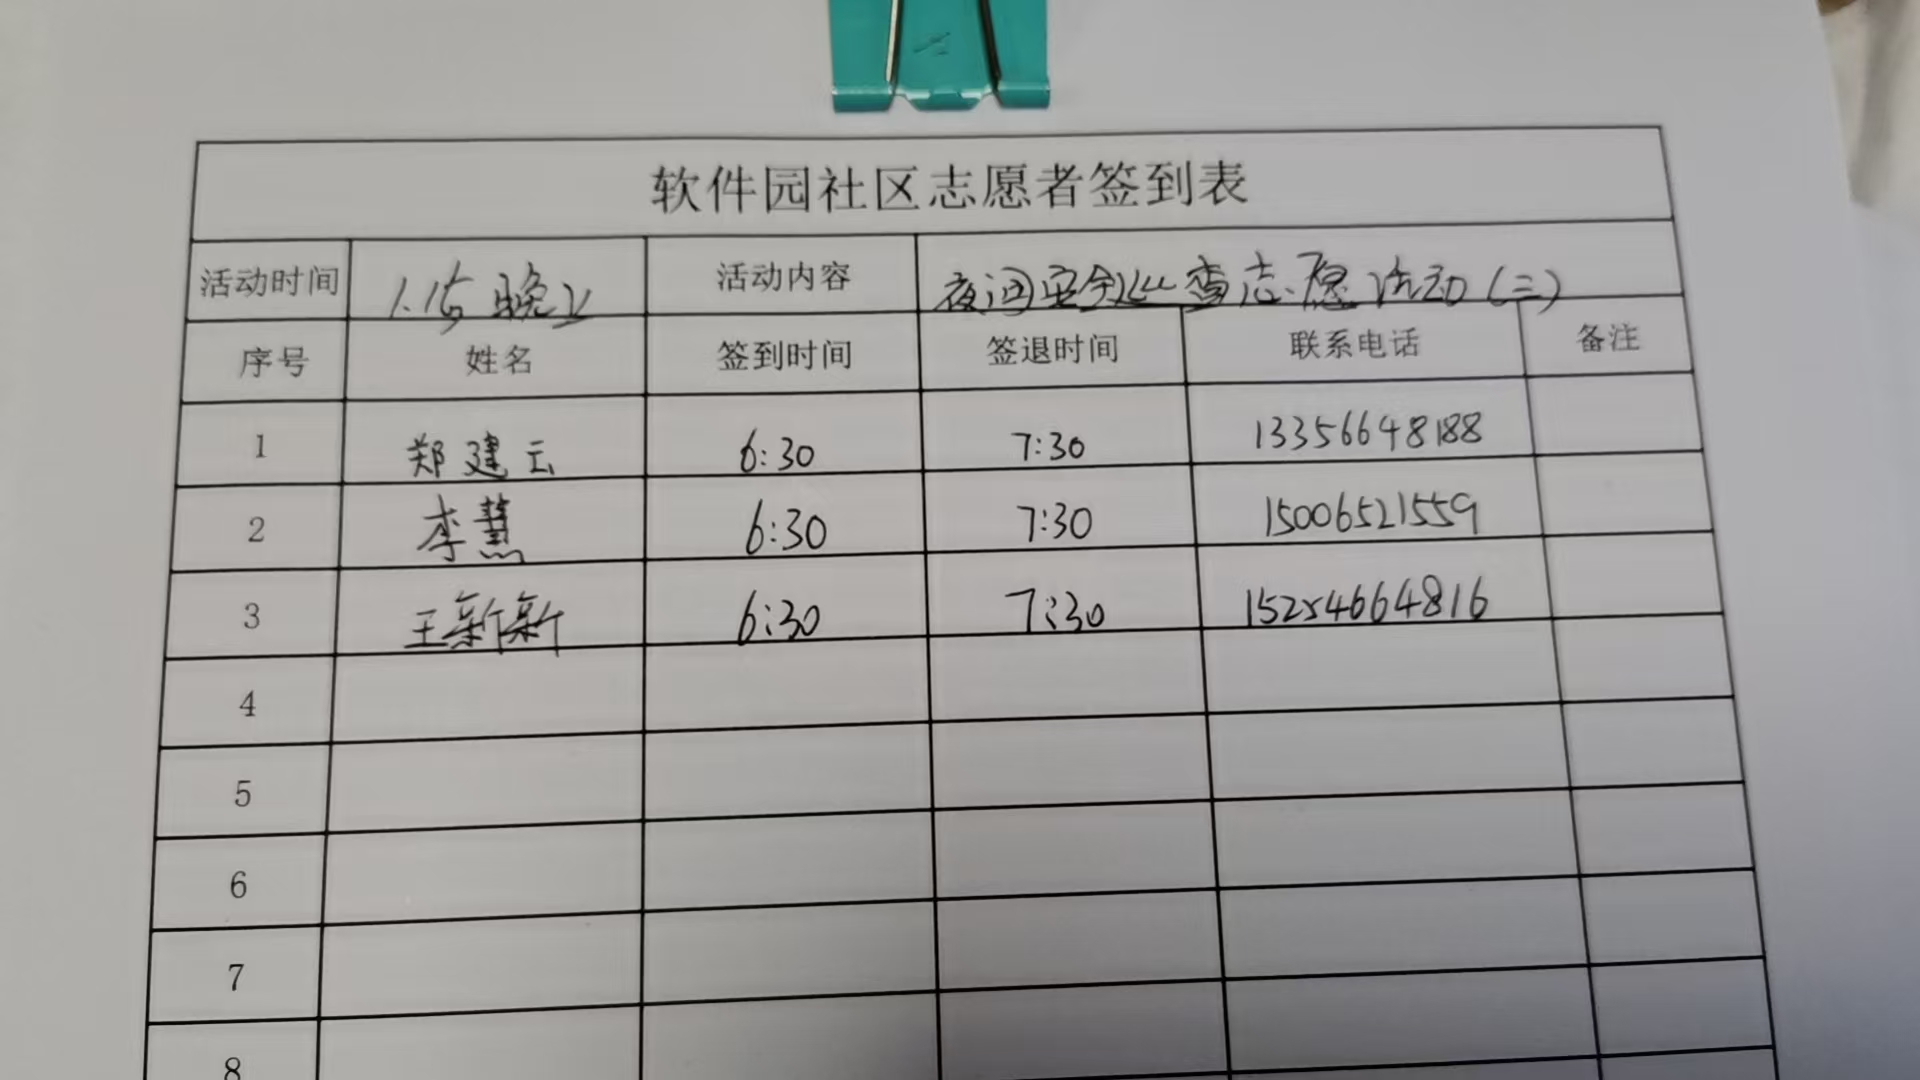 软件园社区志愿者签到表
活动时间 1.15 晚上 活动内容 夜间安全巡查志愿活动(三)
序号 姓名 签到时间 签退时间 联系电话 备注
1 郑建云 6:30 7:30 13356648188
2 李慧 6:30 7:30 15006521559
3 王新新 6:30 7:30 15254664816
4
5
6
7
8